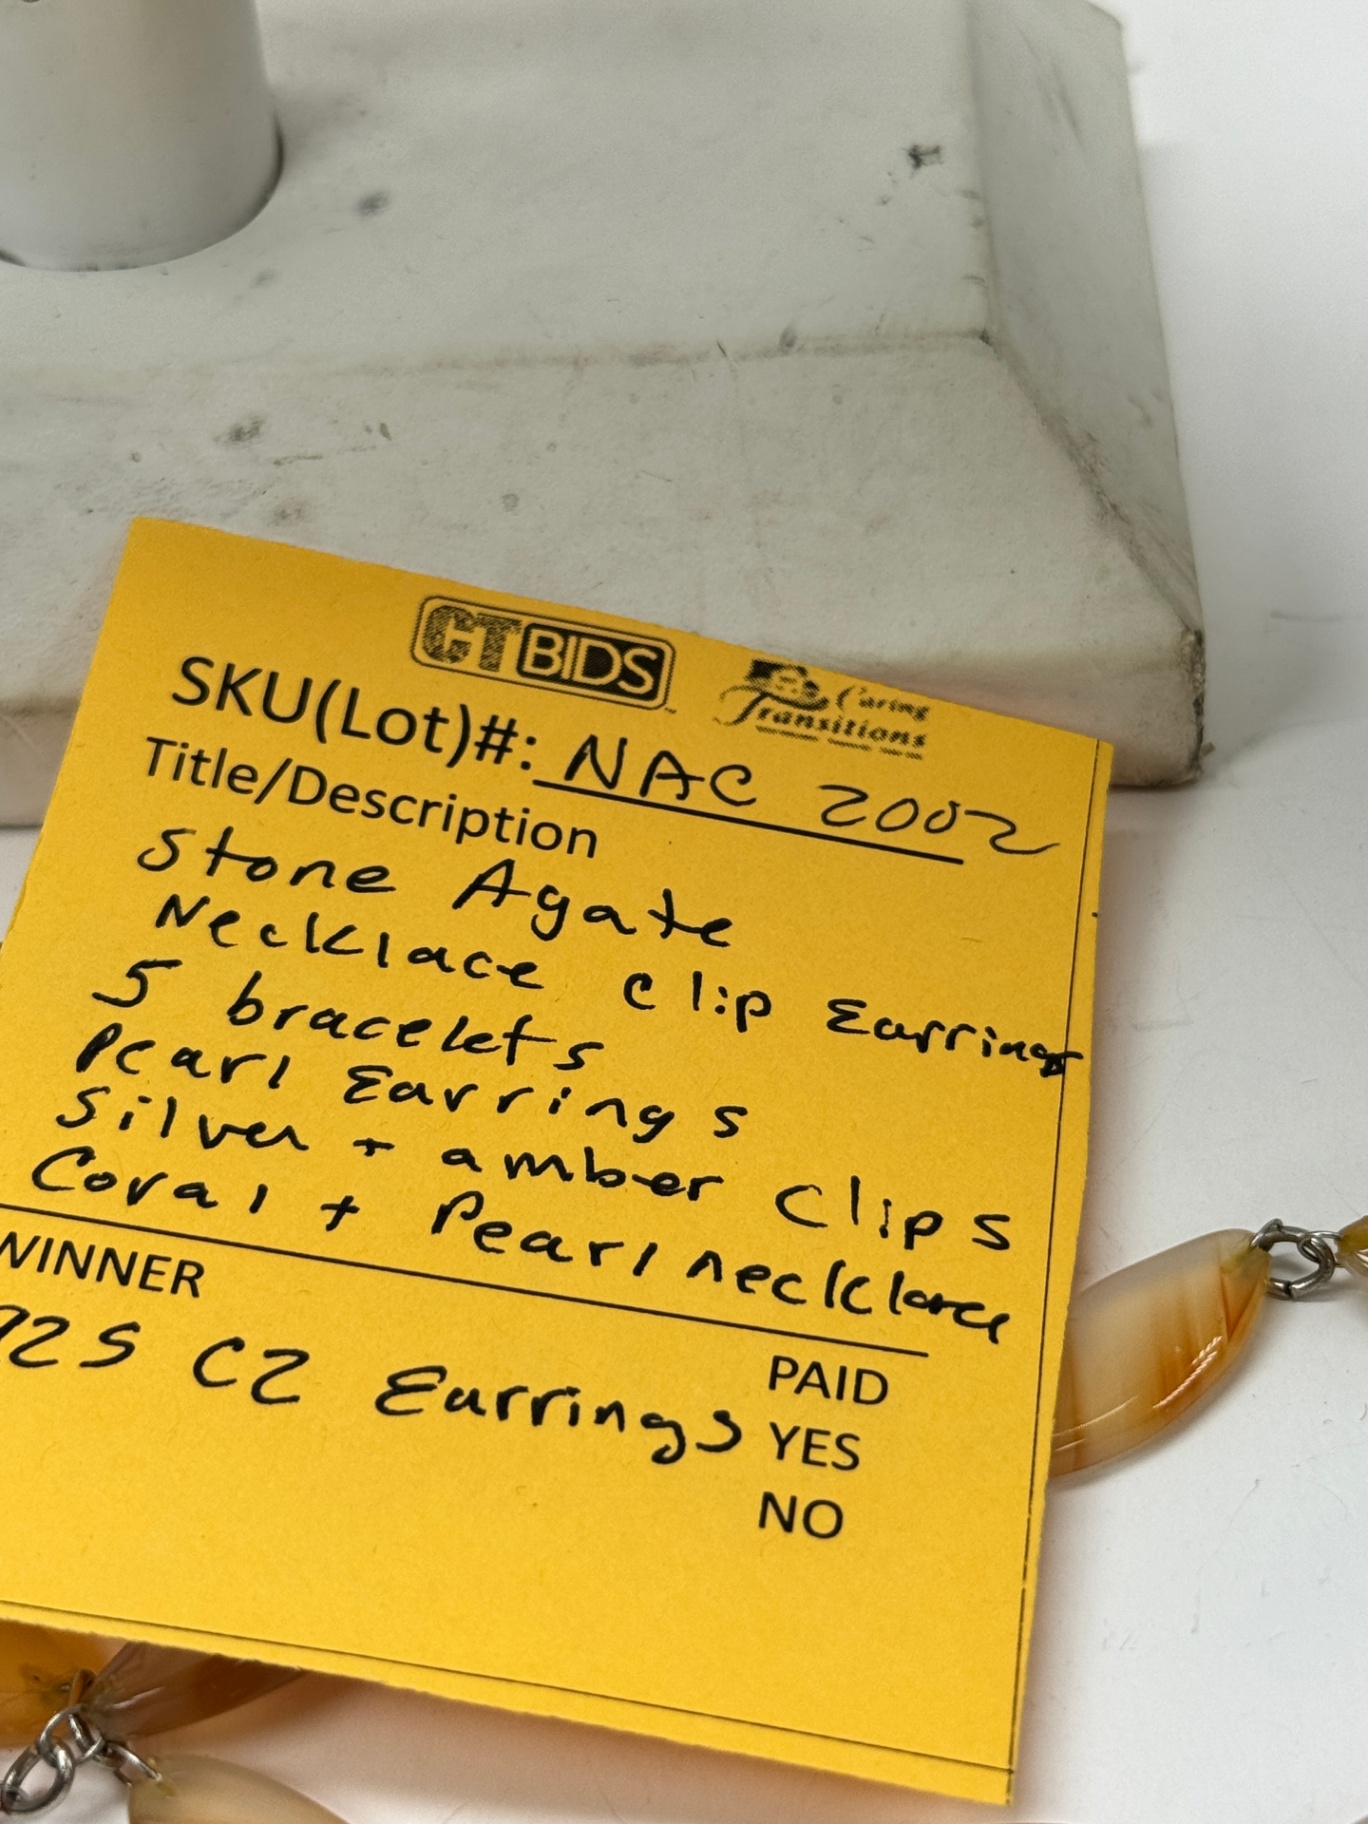 CTBIDS
Caring
Transitions
SKU(Lot)#: NAC 2002
Title/Description
Stone Agate
Necklace Clip Earrings
5 bracelets
Pearl Earrings
Silver + amber Clips
Coral + Pearl necklace
WINNER
925 CZ Earrings
PAID
YES
NO